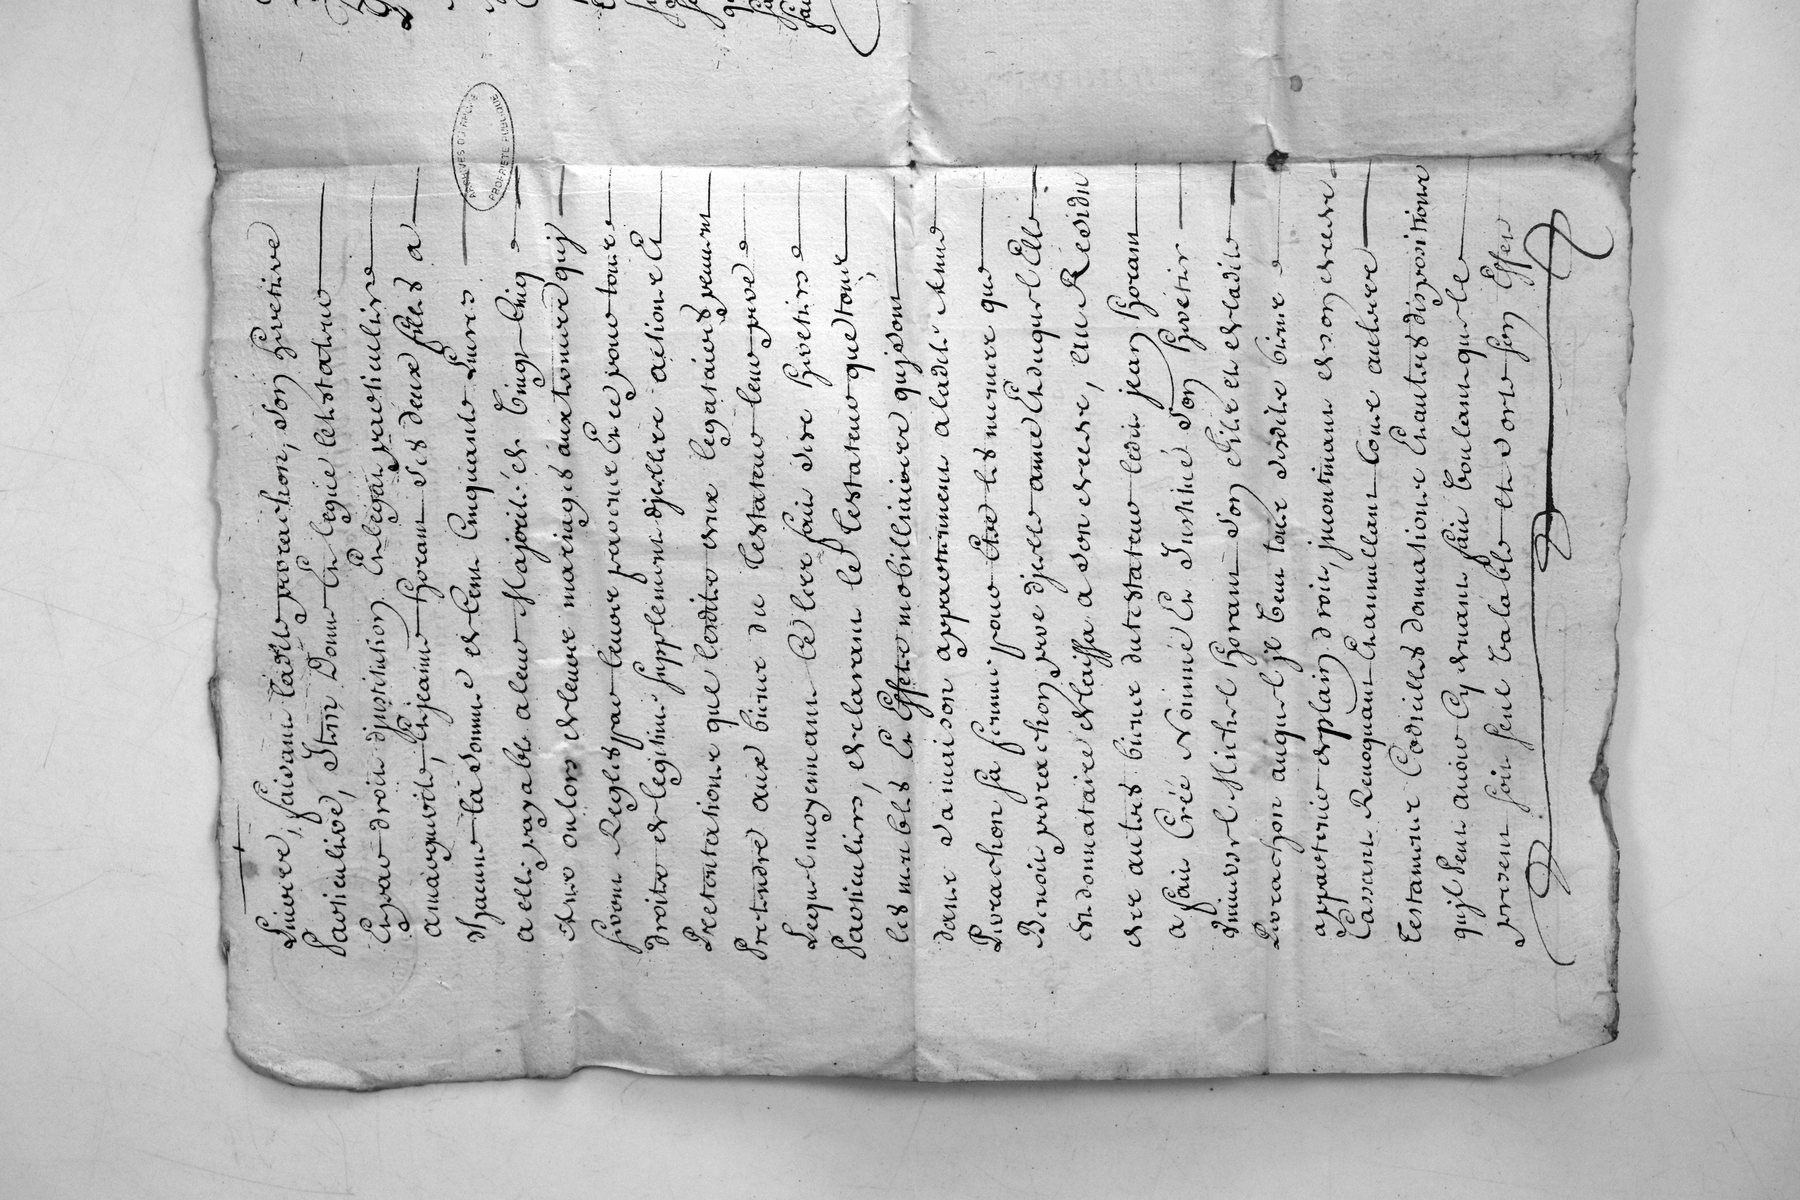 Livres, faisant ladite pivrachon, son hretire
Particulire, Item Donne En legue letestateur
En par droit djnstitution En legat particulire
a marguerite, Et jeanne horant ses deux filles a
chacune la somme de Cent Cinquante Livres
a elles payable a leur Majorité de Vingt Cinq
Ans ou lors de leurs mariages aux termes quj
seront Regles par leurs parens Et ce pour tous
droits de legitime supplement djcelle actions Et
Pretentations que lesdites deux legataires peuvent
Pretendre aux biens du testateur leur pere
Lequel moyennant Ce les a fait dire hretires
Particulires, declarant le testateur que tous
les meubles Et Effets mobilliaires quj sont
dans sa maison appartiennent a ladite Anne
Pivrachon sa femme pour Etre les mesmes que
Benoit pivrachon pere djcelle anne Et duquel Elle
Est donnataire delaissa a son deces, Au Residu
des autres biens du testateur ledit jean horant
a fait Créé Nommé Et Institué son hretier
Universel Michel horant son fils et de ladite
Pivrachon auquel jl Veut tous sesdits biens
appartenir de plain droit, jncontinant de son deces
Cassant Revoquant Et annullant tous autres
testamens Codicilles donnations Et autres dispositions
qujl peut avoir Cy devant fait Voulant que le
present soit seul Valable Et sorte son Effet
ARCHIVES DU RHONE
PROPRIETE PUBLIQUE